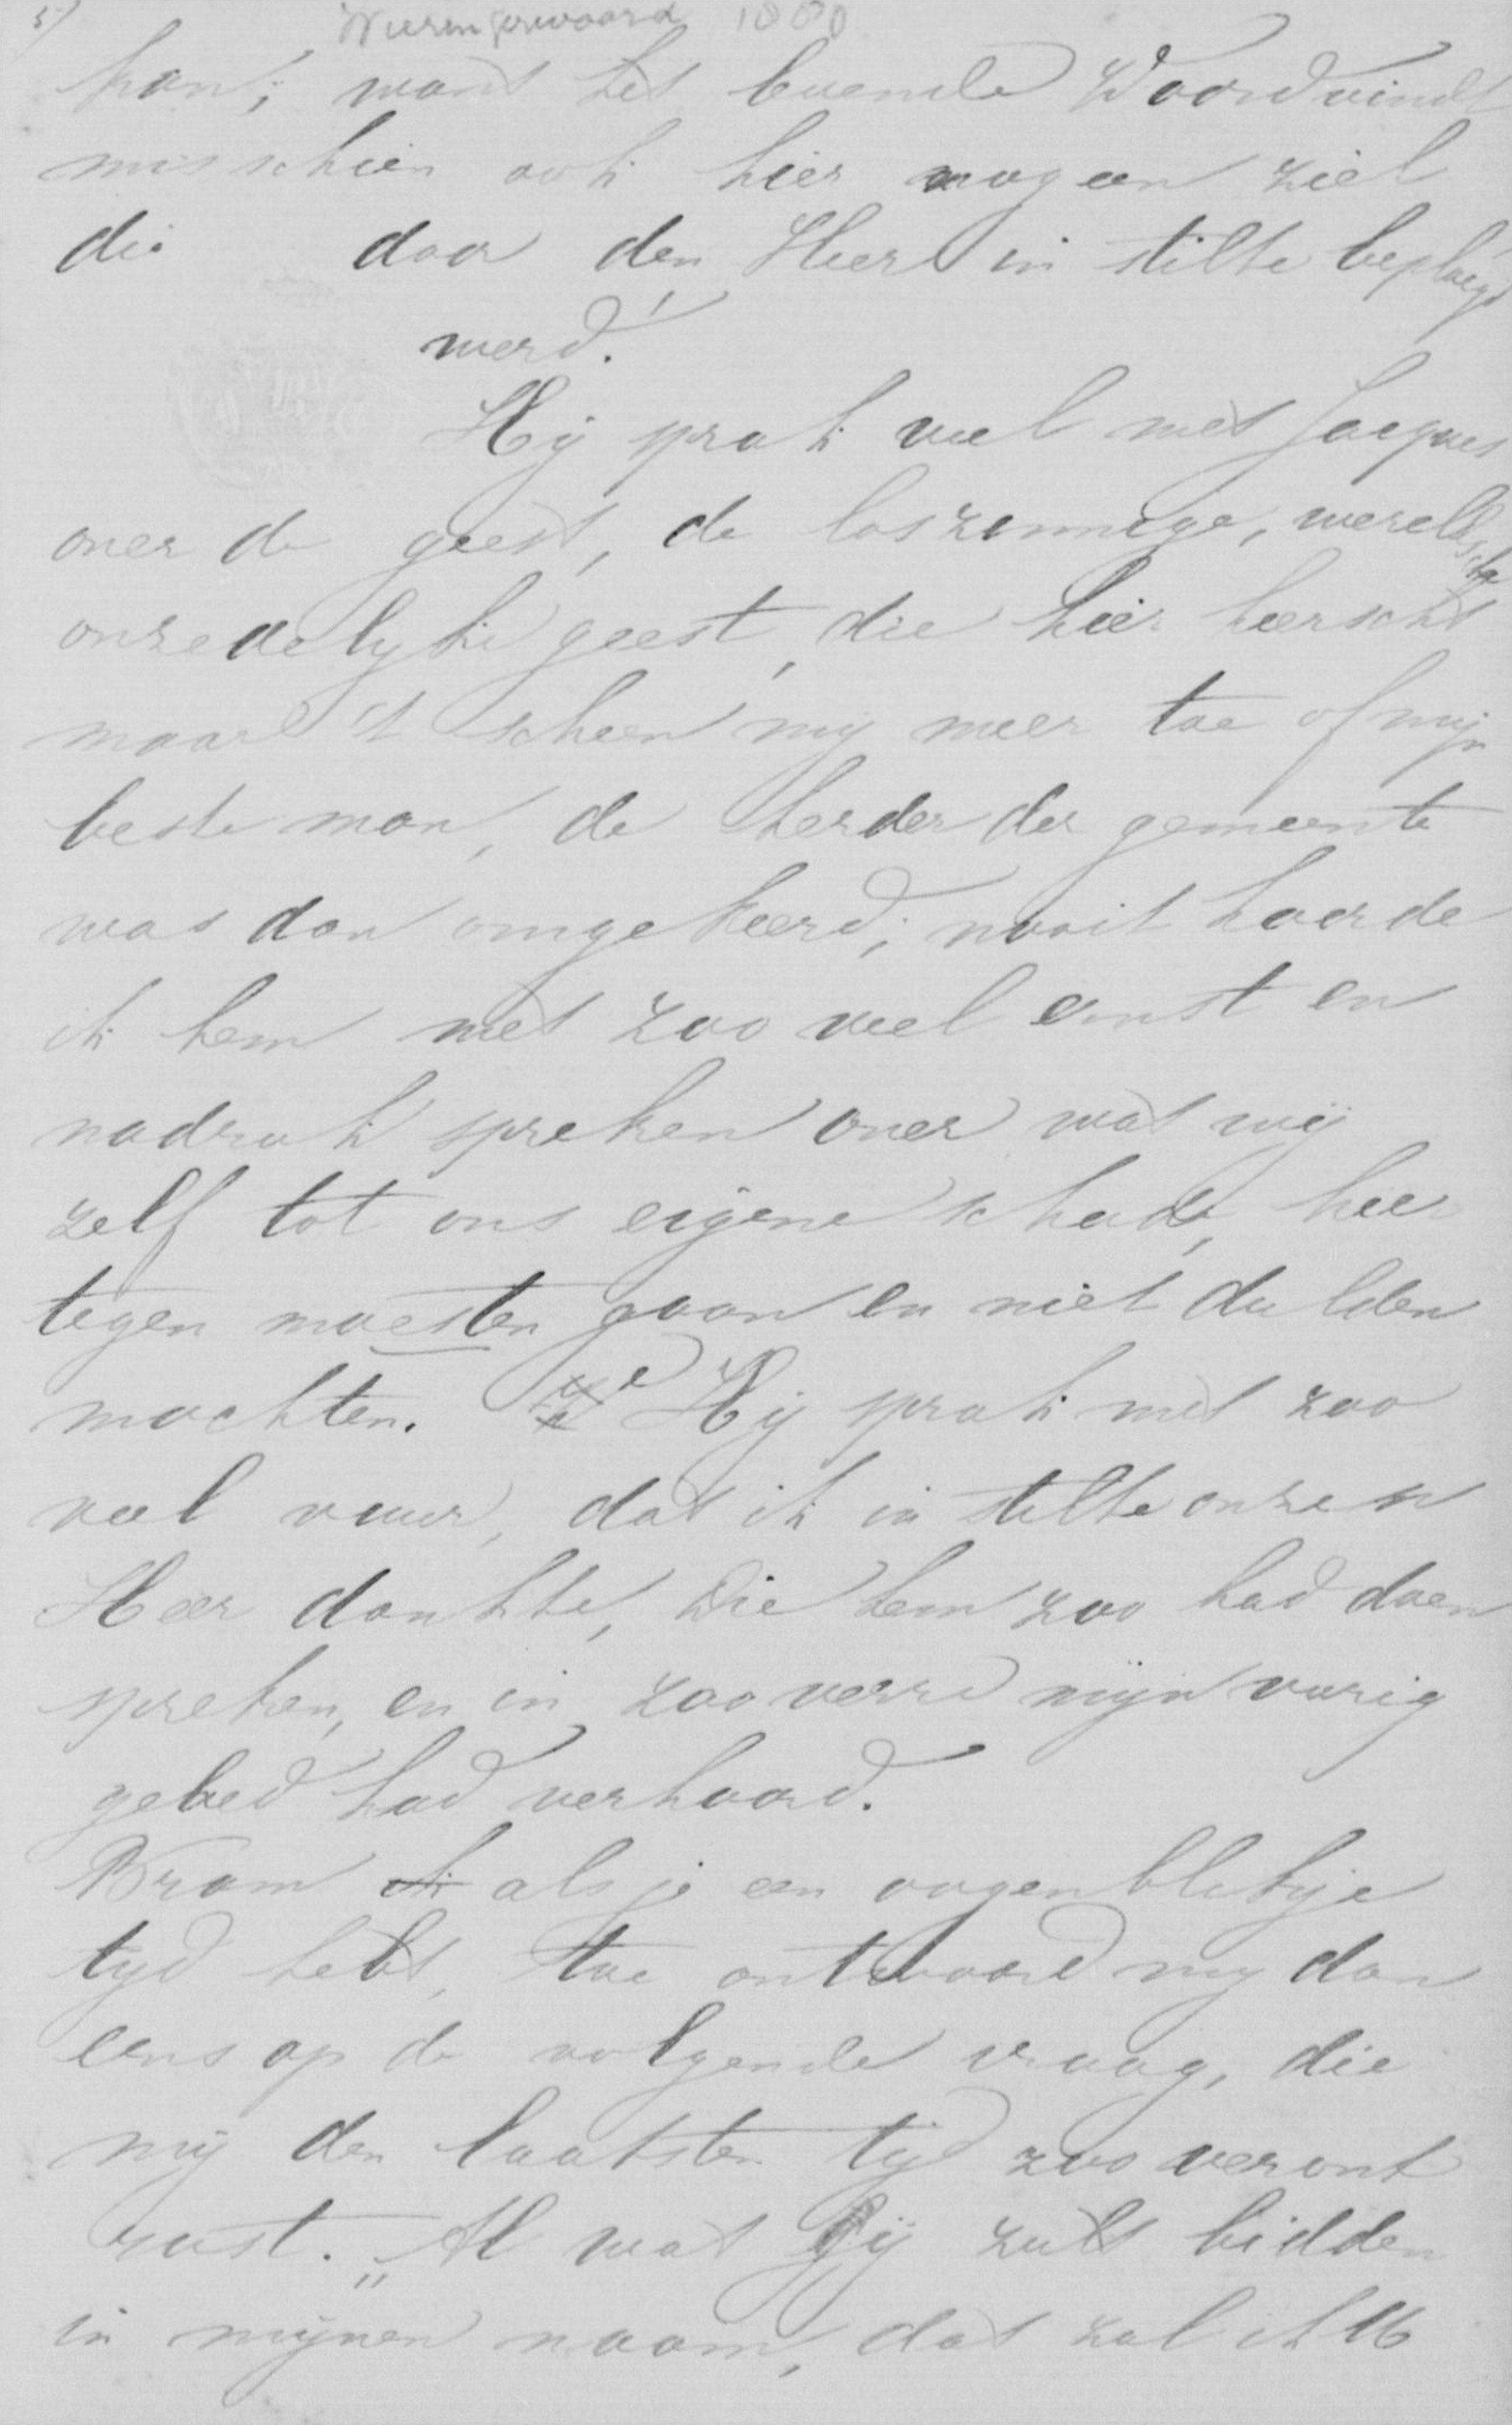 5) Wieringerwaard 1880
kan; want het levende Woord vindt
misschien ook hier nog een ziel
die door den Heer in stilte beploegd
werd!
Hij sprak veel met Jacques
over de geest, de loszinnige, wereldsche
onzedelyke geest, die hier heerscht
maar 't scheen my meer toe of mijn
beste man, de herder der gemeente
was dan omgekeerd; nooit hoorde
ik hem met zoo veel ernst en
nadruk spreken over wat wij
zelf tot ons eigene schade, hier
tegen moesten gaan en niet dulden
mochten. Hij sprak met zoo
veel vuur, dat ik in stilte onzen
Heer dankte, Die hem zoo had doen
spreken, en in zooverre mijn vurig
gebed had verhoord.
Bram ik als je een oogenblikje
tyd hebt, toe antwoord my dan
eens op de volgende vraag, die
mij den laatsten tijd zoo veront
rust. „Al wat Gij zult bidden
in mijnen naam, dat zal ik U